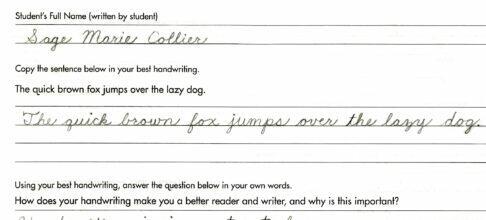 Student's Full Name (written by student)
Sage Marie Collier
Copy the sentence below in your best handwriting.
The quick brown fox jumps over the lazy dog.
The quick brown fox jumps over the lazy dog.
Using your best handwriting, answer the question below in your own words.
How does your handwriting make you a better reader and writer, and why is this important?